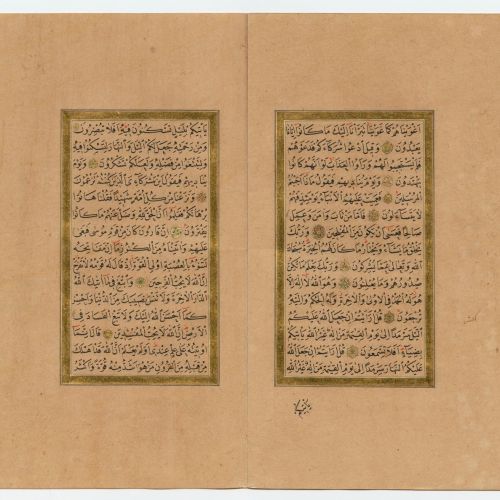 اَغْوَيْنَاهُمْ كَمَا غَوَيْنَا تَبَرَّأْنَا اِلَيْكَ مَا كَانُوا اِيَّانَا
يَعْبُدُونَ وَقِيلَ ادْعُوا شُرَكَاءَكُمْ فَدَعَوْهُمْ
فَلَمْ يَسْتَجِيبُوا لَهُمْ وَرَاَوُا الْعَذَابَ لَوْ اَنَّهُمْ كَانُوا
يَهْتَدُونَ وَيَوْمَ يُنَادِيهِمْ فَيَقُولُ مَاذَا اَجَبْتُمُ
الْمُرْسَلِينَ فَعَمِيَتْ عَلَيْهِمُ الْاَنْبَاءُ يَوْمَئِذٍ فَهُمْ
لَا يَتَسَاءَلُونَ فَاَمَّا مَنْ تَابَ وَاٰمَنَ وَعَمِلَ
صَالِحًا فَعَسَى اَنْ يَكُونَ مِنَ الْمُفْلِحِينَ وَرَبُّكَ
يَخْلُقُ مَا يَشَاءُ وَيَخْتَارُ مَا كَانَ لَهُمُ الْخِيَرَةُ سُبْحَانَ
اللّٰهِ وَتَعَالَى عَمَّا يُشْرِكُونَ وَرَبُّكَ يَعْلَمُ مَا تُكِنُّ
صُدُورُهُمْ وَمَا يُعْلِنُونَ وَهُوَ اللّٰهُ لَا اِلٰهَ اِلَّا
هُوَ لَهُ الْحَمْدُ فِي الْاُولَى وَالْاٰخِرَةِ وَلَهُ الْحُكْمُ وَاِلَيْهِ
تُرْجَعُونَ قُلْ اَرَاَيْتُمْ اِنْ جَعَلَ اللّٰهُ عَلَيْكُمُ
الَّيْلَ سَرْمَدًا اِلَى يَوْمِ الْقِيٰمَةِ مَنْ اِلٰهٌ غَيْرُ اللّٰهِ يَأْتِيكُمْ
بِضِيَاءٍ اَفَلَا تَسْمَعُونَ قُلْ اَرَاَيْتُمْ اِنْ جَعَلَ اللّٰهُ
عَلَيْكُمُ النَّهَارَ سَرْمَدًا اِلَى يَوْمِ الْقِيٰمَةِ مَنْ اِلٰهٌ غَيْرُ اللّٰهِ
يَأْتِيكُمْ
يَأْتِيكُمْ بِلَيْلٍ تَسْكُنُونَ فِيهِ اَفَلَا تُبْصِرُونَ
وَمِنْ رَحْمَتِهِ جَعَلَ لَكُمُ الَّيْلَ وَالنَّهَارَ لِتَسْكُنُوا فِيهِ
وَلِتَبْتَغُوا مِنْ فَضْلِهِ وَلَعَلَّكُمْ تَشْكُرُونَ وَيَوْمَ
يُنَادِيهِمْ فَيَقُولُ اَيْنَ شُرَكَاءِيَ الَّذِينَ كُنْتُمْ تَزْعُمُونَ
وَنَزَعْنَا مِنْ كُلِّ اُمَّةٍ شَهِيدًا فَقُلْنَا هَاتُوا
بُرْهَانَكُمْ فَعَلِمُوا اَنَّ الْحَقَّ لِلّٰهِ وَضَلَّ عَنْهُمْ مَا كَانُوا
يَفْتَرُونَ اِنَّ قَارُونَ كَانَ مِنْ قَوْمِ مُوسَى فَبَغَى
عَلَيْهِمْ وَاٰتَيْنَاهُ مِنَ الْكُنُوزِ مَا اِنَّ مَفَاتِحَهُ
لَتَنُوءُ بِالْعُصْبَةِ اُولِي الْقُوَّةِ اِذْ قَالَ لَهُ قَوْمُهُ لَا تَفْرَحْ
اِنَّ اللّٰهَ لَا يُحِبُّ الْفَرِحِينَ وَابْتَغِ فِيمَا اٰتَاكَ اللّٰهُ
الدَّارَ الْاٰخِرَةَ وَلَا تَنْسَ نَصِيبَكَ مِنَ الدُّنْيَا وَاَحْسِنْ
كَمَا اَحْسَنَ اللّٰهُ اِلَيْكَ وَلَا تَبْغِ الْفَسَادَ فِي
الْاَرْضِ اِنَّ اللّٰهَ لَا يُحِبُّ الْمُفْسِدِينَ قَالَ اِنَّمَا
اُوتِيتُهُ عَلَى عِلْمٍ عِنْدِي اَوَلَمْ يَعْلَمْ اَنَّ اللّٰهَ قَدْ اَهْلَكَ
مِنْ قَبْلِهِ مِنَ الْقُرُونِ مَنْ هُوَ اَشَدُّ مِنْهُ قُوَّةً وَاَكْثَرُ